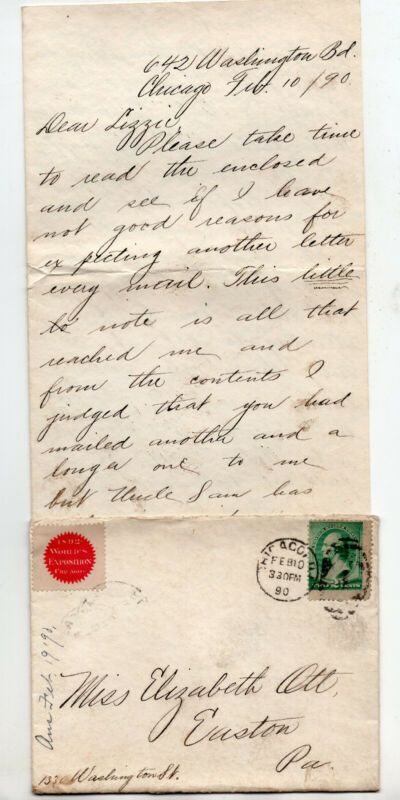 642 Washington Bd.
Chicago Feb. 10/90
Dear Lizzie,
Please take time
to read the enclosed
and see if I have
not good reasons for
ex pecting another letter
every mail. This little
to note is all that
reached me and
from the contents I
judged that you had
mailed another and a
longer one to me
but Uncle Sam has
1892
WORLD'S
EXPOSITION
CHICAGO
CHICAGO, ILL
FEB 10
330PM
90
Ans Feb. 19'90
Miss Elizabeth Ott,
Easton
Pa.
Washington St.